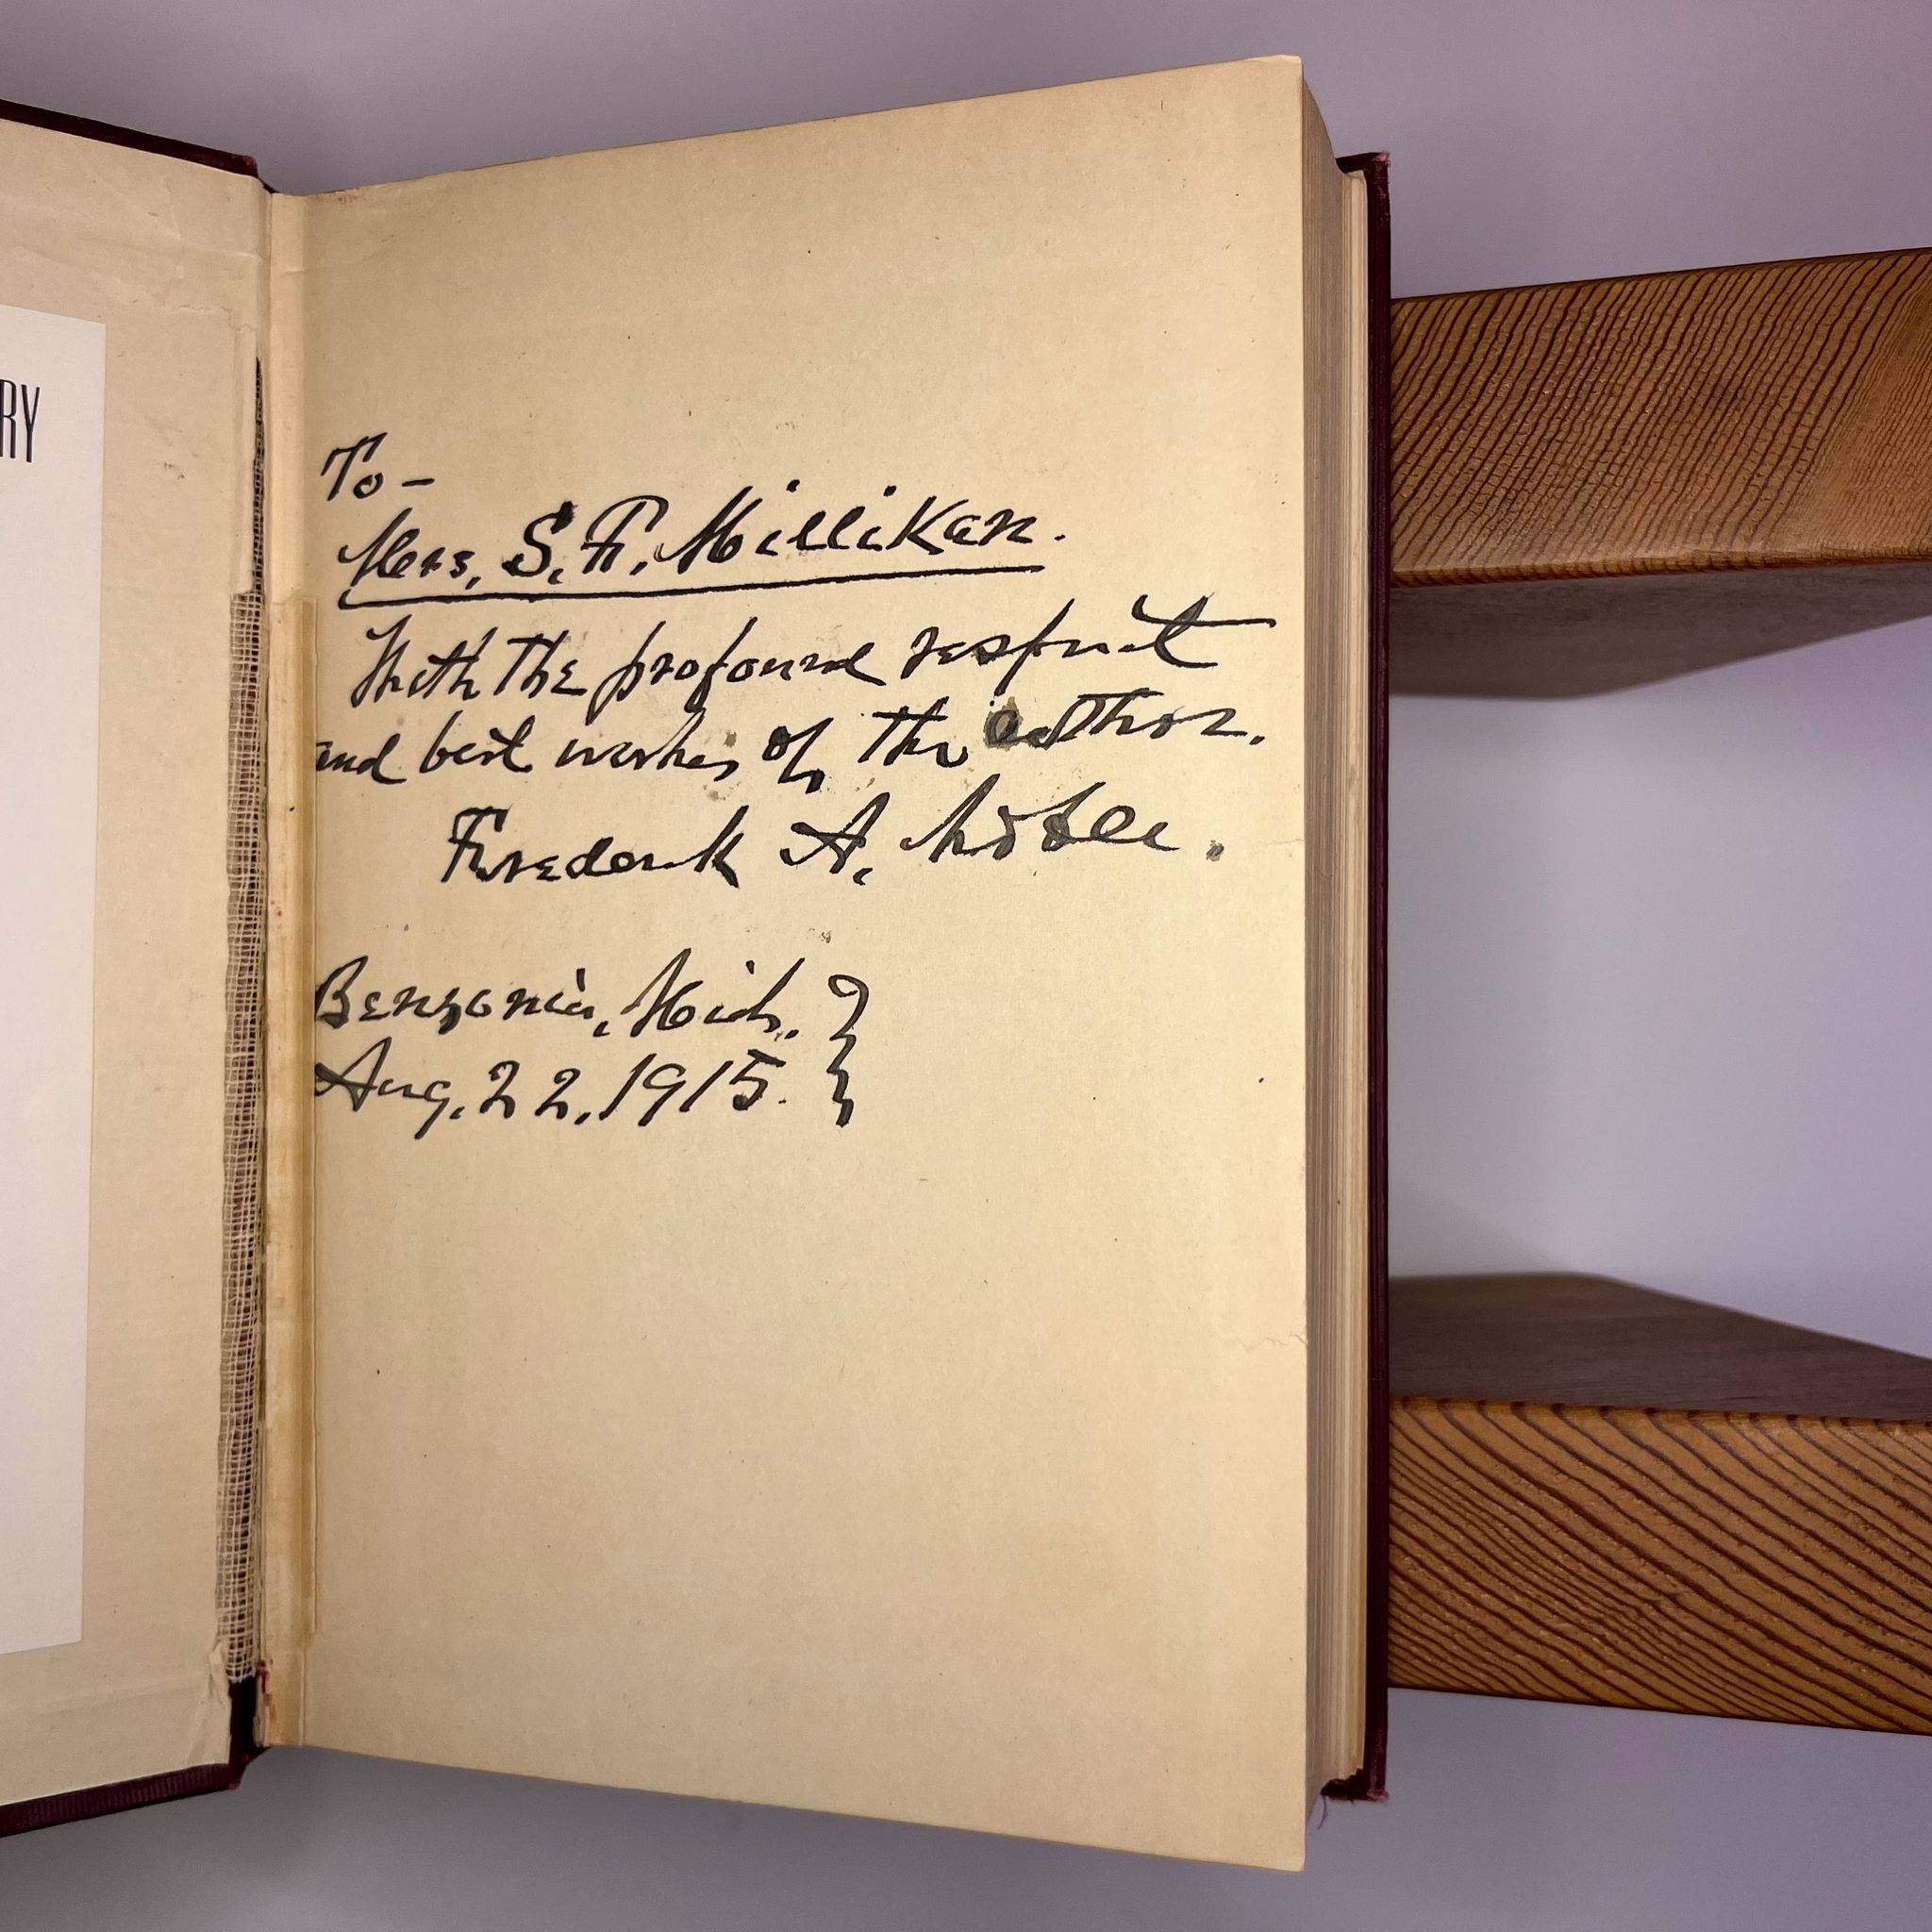 RY
To-
Mrs. S. F. Millikan.
With the profound respect
and best wishes of the author.
Frederick A. Noble.
Benzonia, Mich. }
Aug. 22, 1915. }